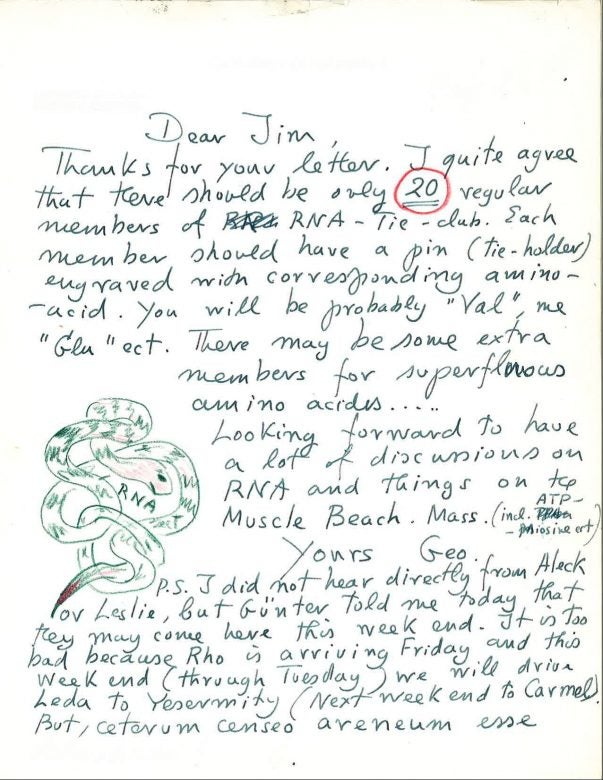 Dear Jim,
Thanks for your letter. I quite agree
that there should be only 20 regular
members of RNA-Tie-club. Each
member should have a pin (tie-holder)
engraved with corresponding amino-
-acid. You will be probably "Val", me
"Glu" ect. There may be some extra
members for superfluous
amino acides.....
Looking forward to have
a lot of discussions on
RNA and things on the
Muscle Beach. Mass. (incl. ATP-
-miosine ect)
RNA
Yours Geo.
P.S. I did not hear directly from Aleck
or Leslie, but Günter told me today that
they may come here this week end. It is too
bad because Rho is arriving Friday and this
week end (through Tuesday) we will drive
Leda to Yesermity (Next week end to Carmel).
But, ceterum censeo areneum esse